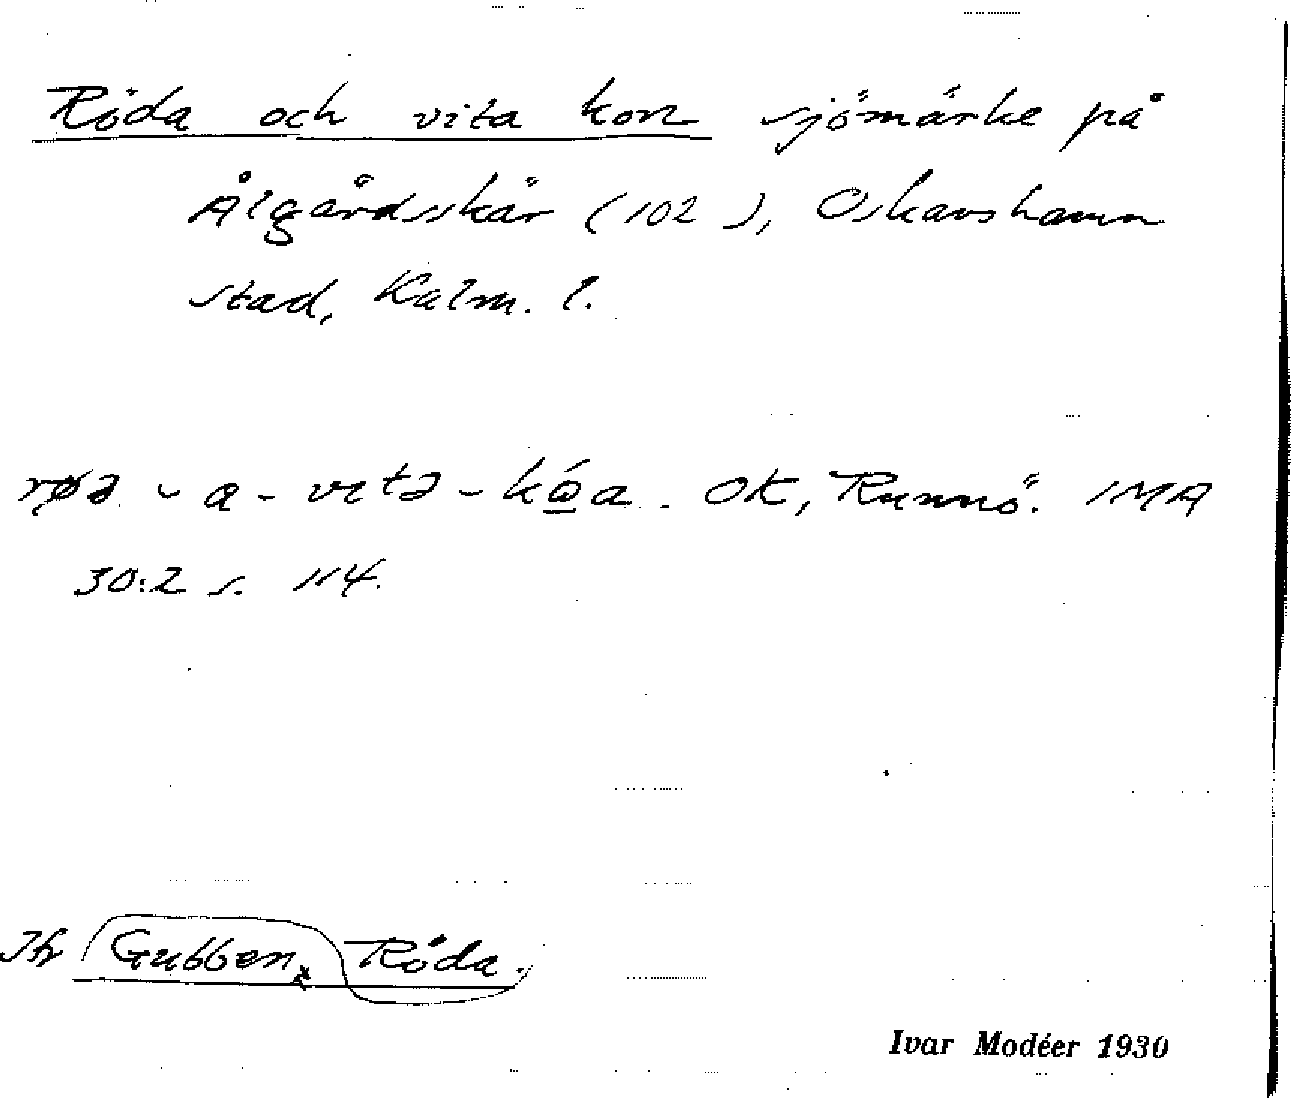 Röda och vita kon sjömärke på
Ålgårdsskär (102), Oskarshamn
stad, Kalm. l.
røə - a - vitə - kώa. OK, Runnö. IMA
30:2 s. 114.
Jfr Gubben, Röda.
Ivar Modéer 1930